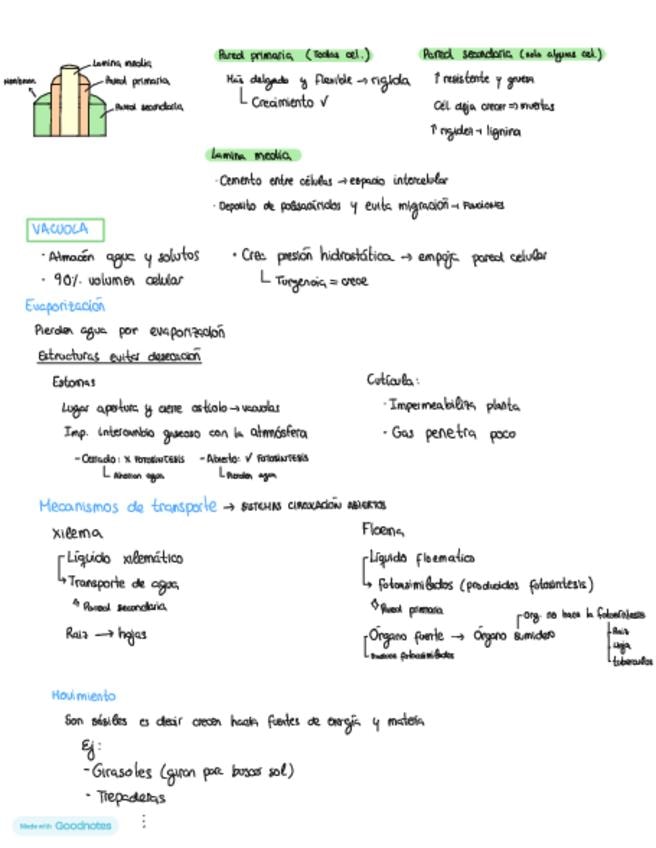 Lamina media
Membrana
Pared primaria
Pared secundaria
Pared primaria (Todas cel.)
Más delgada y flexible → rigida
Crecimiento ✓
Pared secundaria (solo algunas cel.)
↑ resistente y gruesa
Cél deja crecer ⇒ muertas
↑ rigidez → lignina
Lamina media
· Cemento entre células → espacio intercelular
· Deposito de polisacáridos y evita migración → FUNCIONES
VACUOLA
· Almacén agua y solutos
· 90% volumen celular
· Crea presión hidrostática → empuja pared celular
Turgencia = crece
Evaporización
Pierden agua por evaporización
Estructuras evitar desecación
Estomas
Lugar apertura y cierre ostíolo → vacuolas
Imp. intercambio gaseoso con la atmósfera
- Cerrado: x FOTOSINTESIS
Ahorran agua
- Abierto: ✓ FOTOSINTESIS
Pierden agua
Cutícula:
· Impermeabiliza planta
· Gas penetra poco
Mecanismos de transporte → SISTEMAS CIRCULACIÓN ABIERTOS
Xilema
Líquido xilemático
Transporte de agua
Pared secundaria
Raiz → hojas
Floema
Líquido floematico
fotoasimilados (producidos fotosíntesis)
Pared primaria
Órgano fuente → Órgano sumidero
Produce fotoasimilados
Org. no hace la fotosíntesis
Raiz
Hoja
tuberculos
Movimiento
Son sésiles es decir crecen hacia fuentes de energía y materia
Ej:
- Girasoles (giran para buscar sol)
- Trepadoras
⋮
Made with Goodnotes